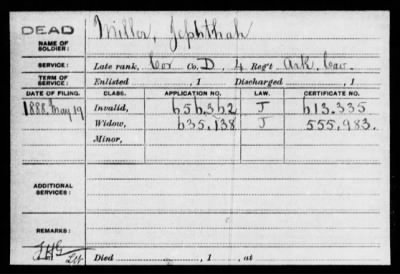 DEAD
NAME OF SOLDIER: Miller, Jephthah
SERVICE: Late rank, Cor Co. D, 4 Reg't Ark. Cav.
TERM OF SERVICE: Enlisted , 1 Discharged , 1
DATE OF FILING. CLASS. APPLICATION NO. LAW. CERTIFICATE NO.
1888. May 19 Invalid, 656,362 J 613.335
Widow, 635,138 J 555,983.
Minor,
ADDITIONAL SERVICES:
REMARKS:
Died , 1 , at